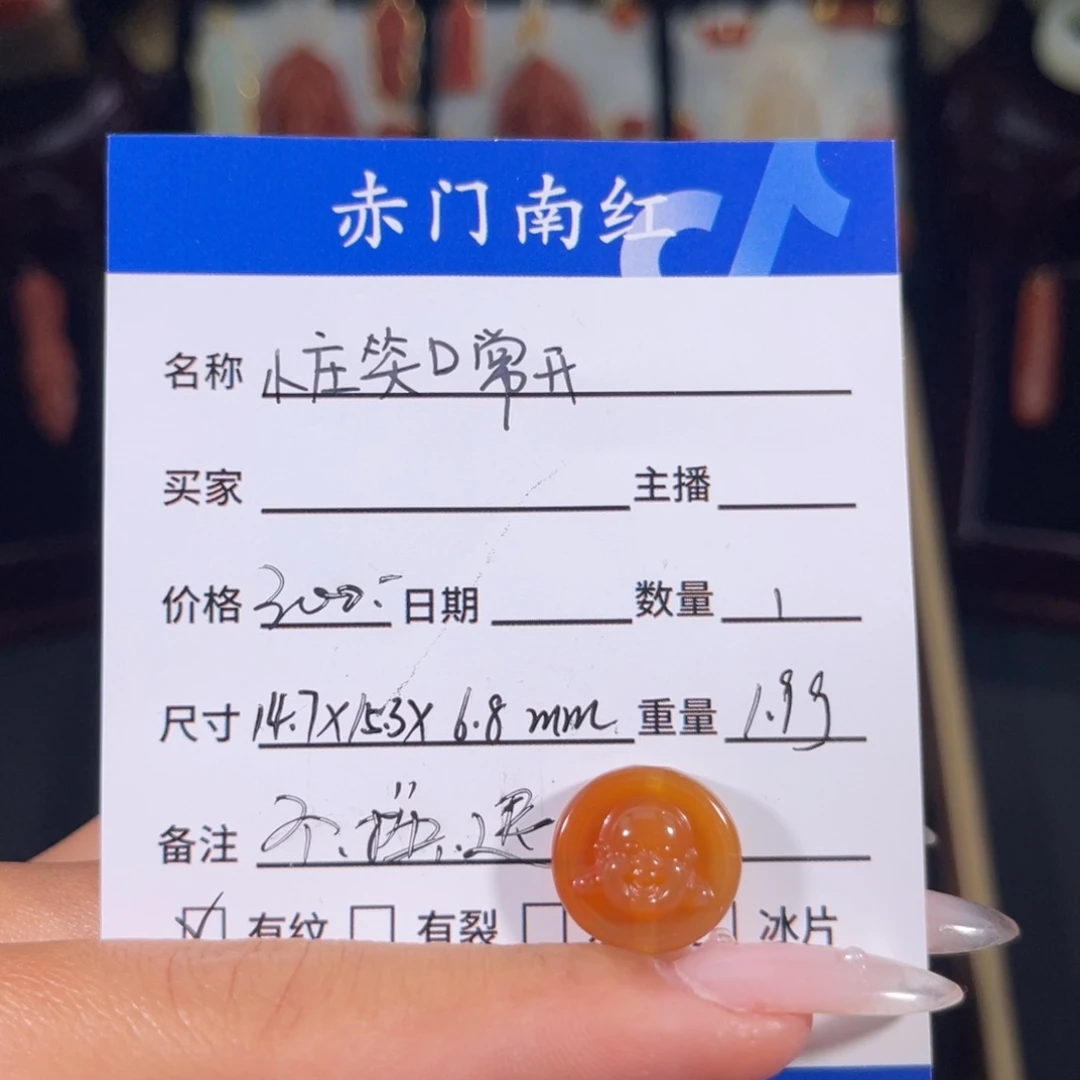 赤门南红
名称 小庄笑口常开
买家 主播
价格 300.- 日期 数量 1
尺寸 14.7X15.3X 6.8 mm 重量 1.9g
备注 不 退
有纹 有裂 冰片